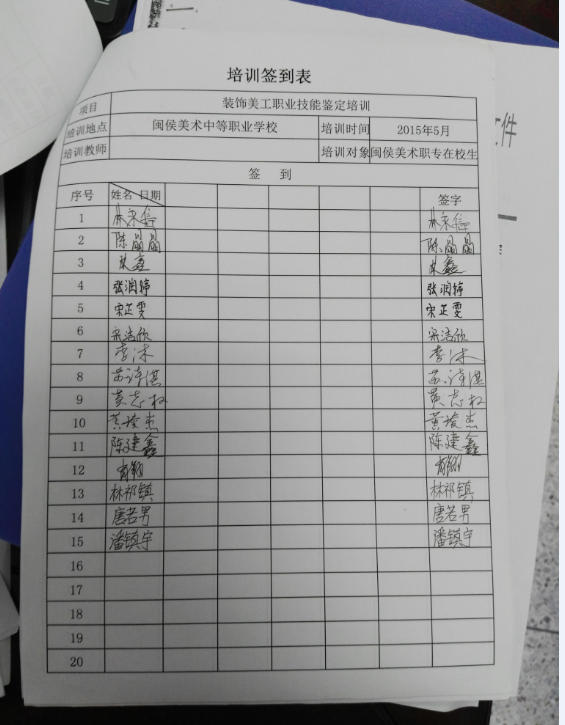 培训签到表
项目 装饰美工职业技能鉴定培训
培训地点 闽侯美术中等职业学校 培训时间 2015年5月
培训教师 培训对象 闽侯美术职专在校生
签 到
序号 姓名 日期 签字
1
2 陈晶晶 陈晶晶
3
4 张润婷 张润婷
5 宋芷雯 宋芷雯
6 宋洁欣 宋洁欣
7 李沐 李沐
8 苏诗淇 苏诗淇
9 黄志权 黄志权
10 黄埈杰 黄埈杰
11 陈建鑫 陈建鑫
12
13 林祁镇 林祁镇
14 唐若男 唐若男
15 潘镇宇 潘镇宇
16
17
18
19
20
文件